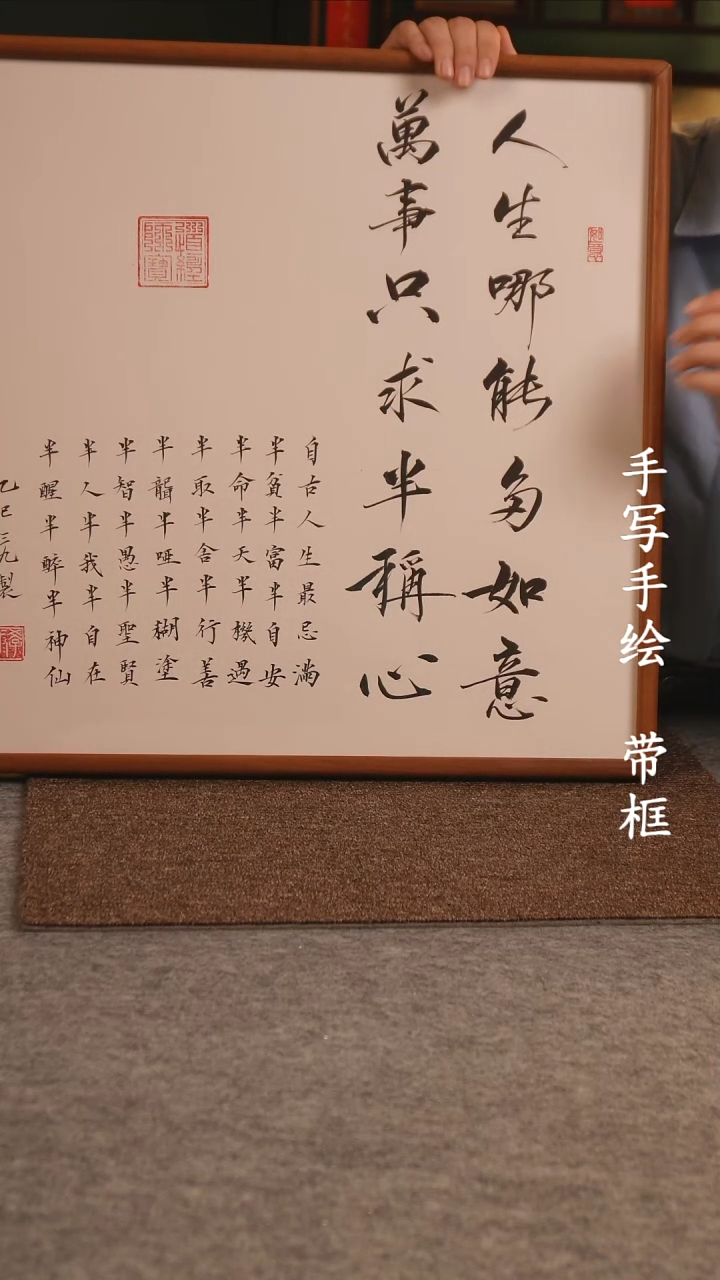 人生哪能多如意
萬事只求半稱心
自古人生最忌滿
半貧半富半自安
半命半天半機遇
半取半舍半行善
半聾半啞半糊塗
半智半愚半聖賢
半人半我半自在
半醒半醉半神仙
乙巳三九製
手写手绘 带框